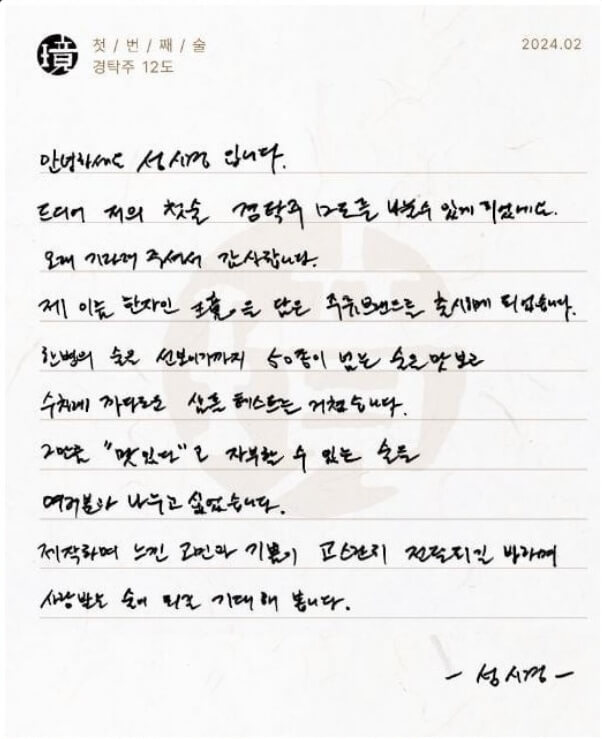 첫 / 번 / 째 / 술
경탁주 12도
2024.02
안녕하세요 성시경 입니다.
드디어 저의 첫술 경탁주 12도를 나눌수 있게 되었네요.
오래 기다려 주셔서 감사합니다.
제 이름 한자인 을 담은 주류브랜드를 출시하게 되었습니다.
한병의 술을 선보이기까지 50종이 넘는 술을 맛보고
수차례 까다로운 샘플 테스트를 거쳤습니다.
그만큼 "맛있다"고 자부할 수 있는 술을
여러분과 나누고 싶었습니다.
제작하며 느낀 고민과 기쁨이 고스란히 전달되길 바라며
사랑받는 술이 되길 기대해 봅니다.
- 성시경 -